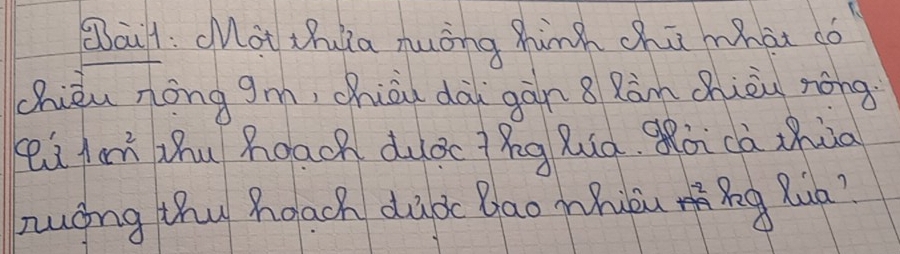 Bài 1: Một thửa ruộng hình chữ nhật có
chiều rộng 9m, chiều dài gấp 8 lần chiều rộng.
Cứ 1m² thu hoạch được 7kg lúa. Hỏi cả thửa
ruộng thu hoạch được bao nhiêu kg lúa?